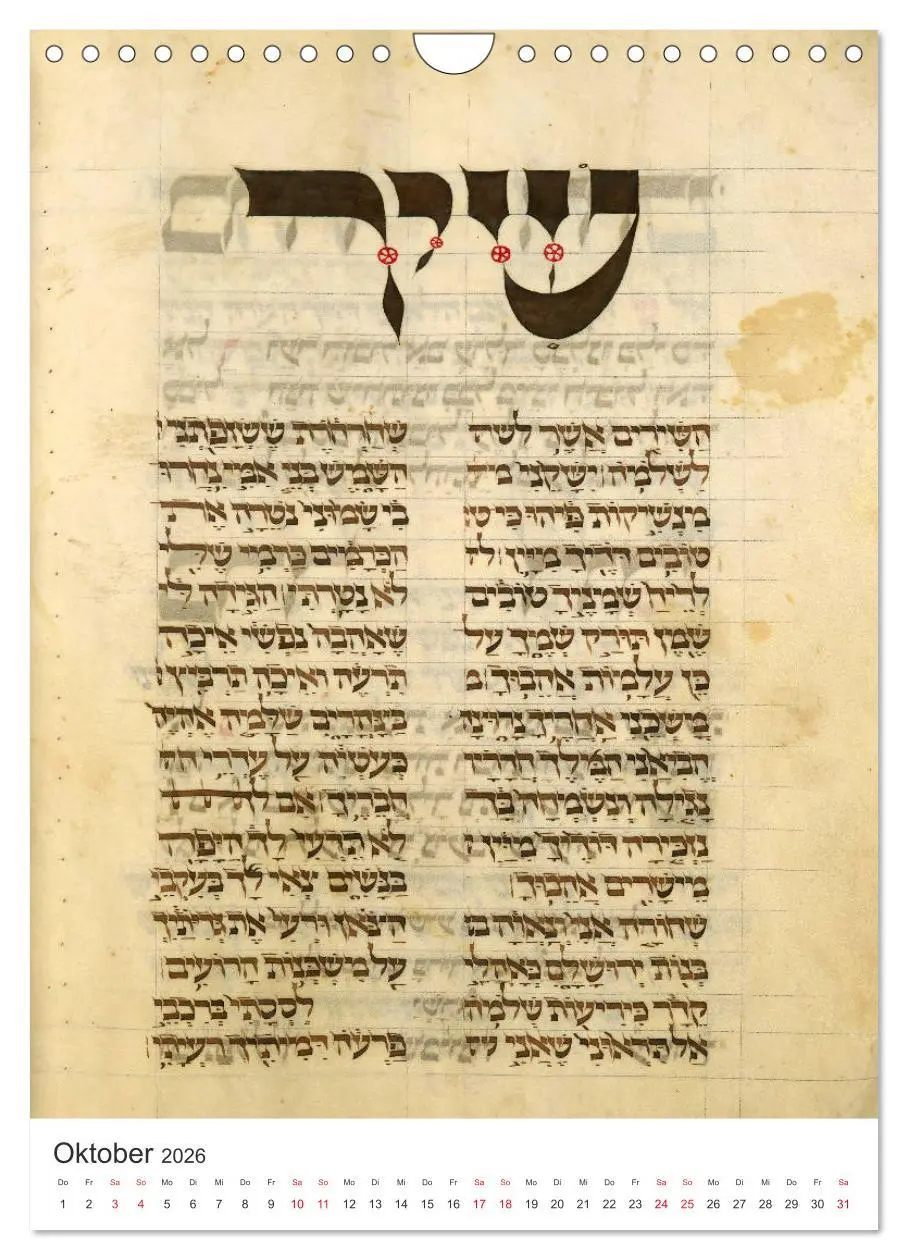 שיר
השירים אשר
לשלמה ישקני
מנשיקות פיהו כי טו
טובים דדיך מיין לר
לריח שמניך טובים
שמן תורק שמך על
כן עלמות אהבוך מ
משכני אחריך נרוצה
הביאני המלך חדריו
נגילה ונשמחה בך
נזכירה דודיך מיין
מישרים אהבוך
שחורה אני ונאוה בנ
בנות ירושלם כאהלי
קדר כיריעות שלמה
אל תראוני שאני
שחרחרת ששזפתני
השמש בני אמי נחרו
בי שמוני נטרה את
הכרמים כרמי שלי
לא נטרתי הגידה לי
שאהבה נפשי איכה
תרעה איכה תרביץ
בצהרים שלמה אהיה
כעטיה על עדרי
חבריך אם
לא תדעי לך היפה
בנשים צאי לך בעקבי
הצאן ורעי את גדיתיך
על משכנות הרועים
לססתי ברכבי
פרעה דמיתיך רעיתי
Oktober 2026
Do Fr Sa So Mo Di Mi Do Fr Sa So Mo Di Mi Do Fr Sa So Mo Di Mi Do Fr Sa So Mo Di Mi Do Fr Sa
1 2 3 4 5 6 7 8 9 10 11 12 13 14 15 16 17 18 19 20 21 22 23 24 25 26 27 28 29 30 31